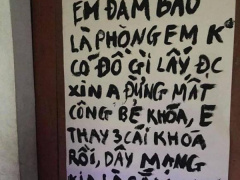 EM ĐẢM BẢO
LÀ PHÒNG EM K°
CÓ ĐỒ GÌ LẤY ĐC
XIN A ĐỪNG MẤT
CÔNG BẺ KHÓA, E
THAY 3 CÁI KHOÁ
RỒI, DÂY MẠNG
XIN LÀ